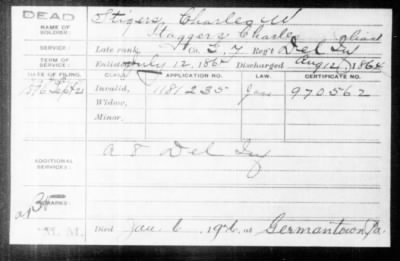 DEAD
NAME OF SOLDIER: Stigers, Charles W
Staggers Charles alias
SERVICE: Late rank, Co. E 7 Reg't Del Inf
TERM OF SERVICE: Enlisted July 12, 1864 Discharged Aug 12, 1864
DATE OF FILING. CLASS. APPLICATION NO. LAW. CERTIFICATE NO.
1896 Sept 21 Invalid, 1181235 970562
Widow,
Minor,
ADDITIONAL SERVICES: A 8 Del Inf
REMARKS:
Died Jan 6, 1926, at Germantown, Pa.